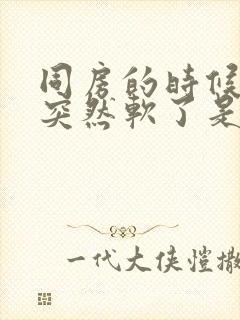 同房的时候
突然軟了是
一代大侠愷撒